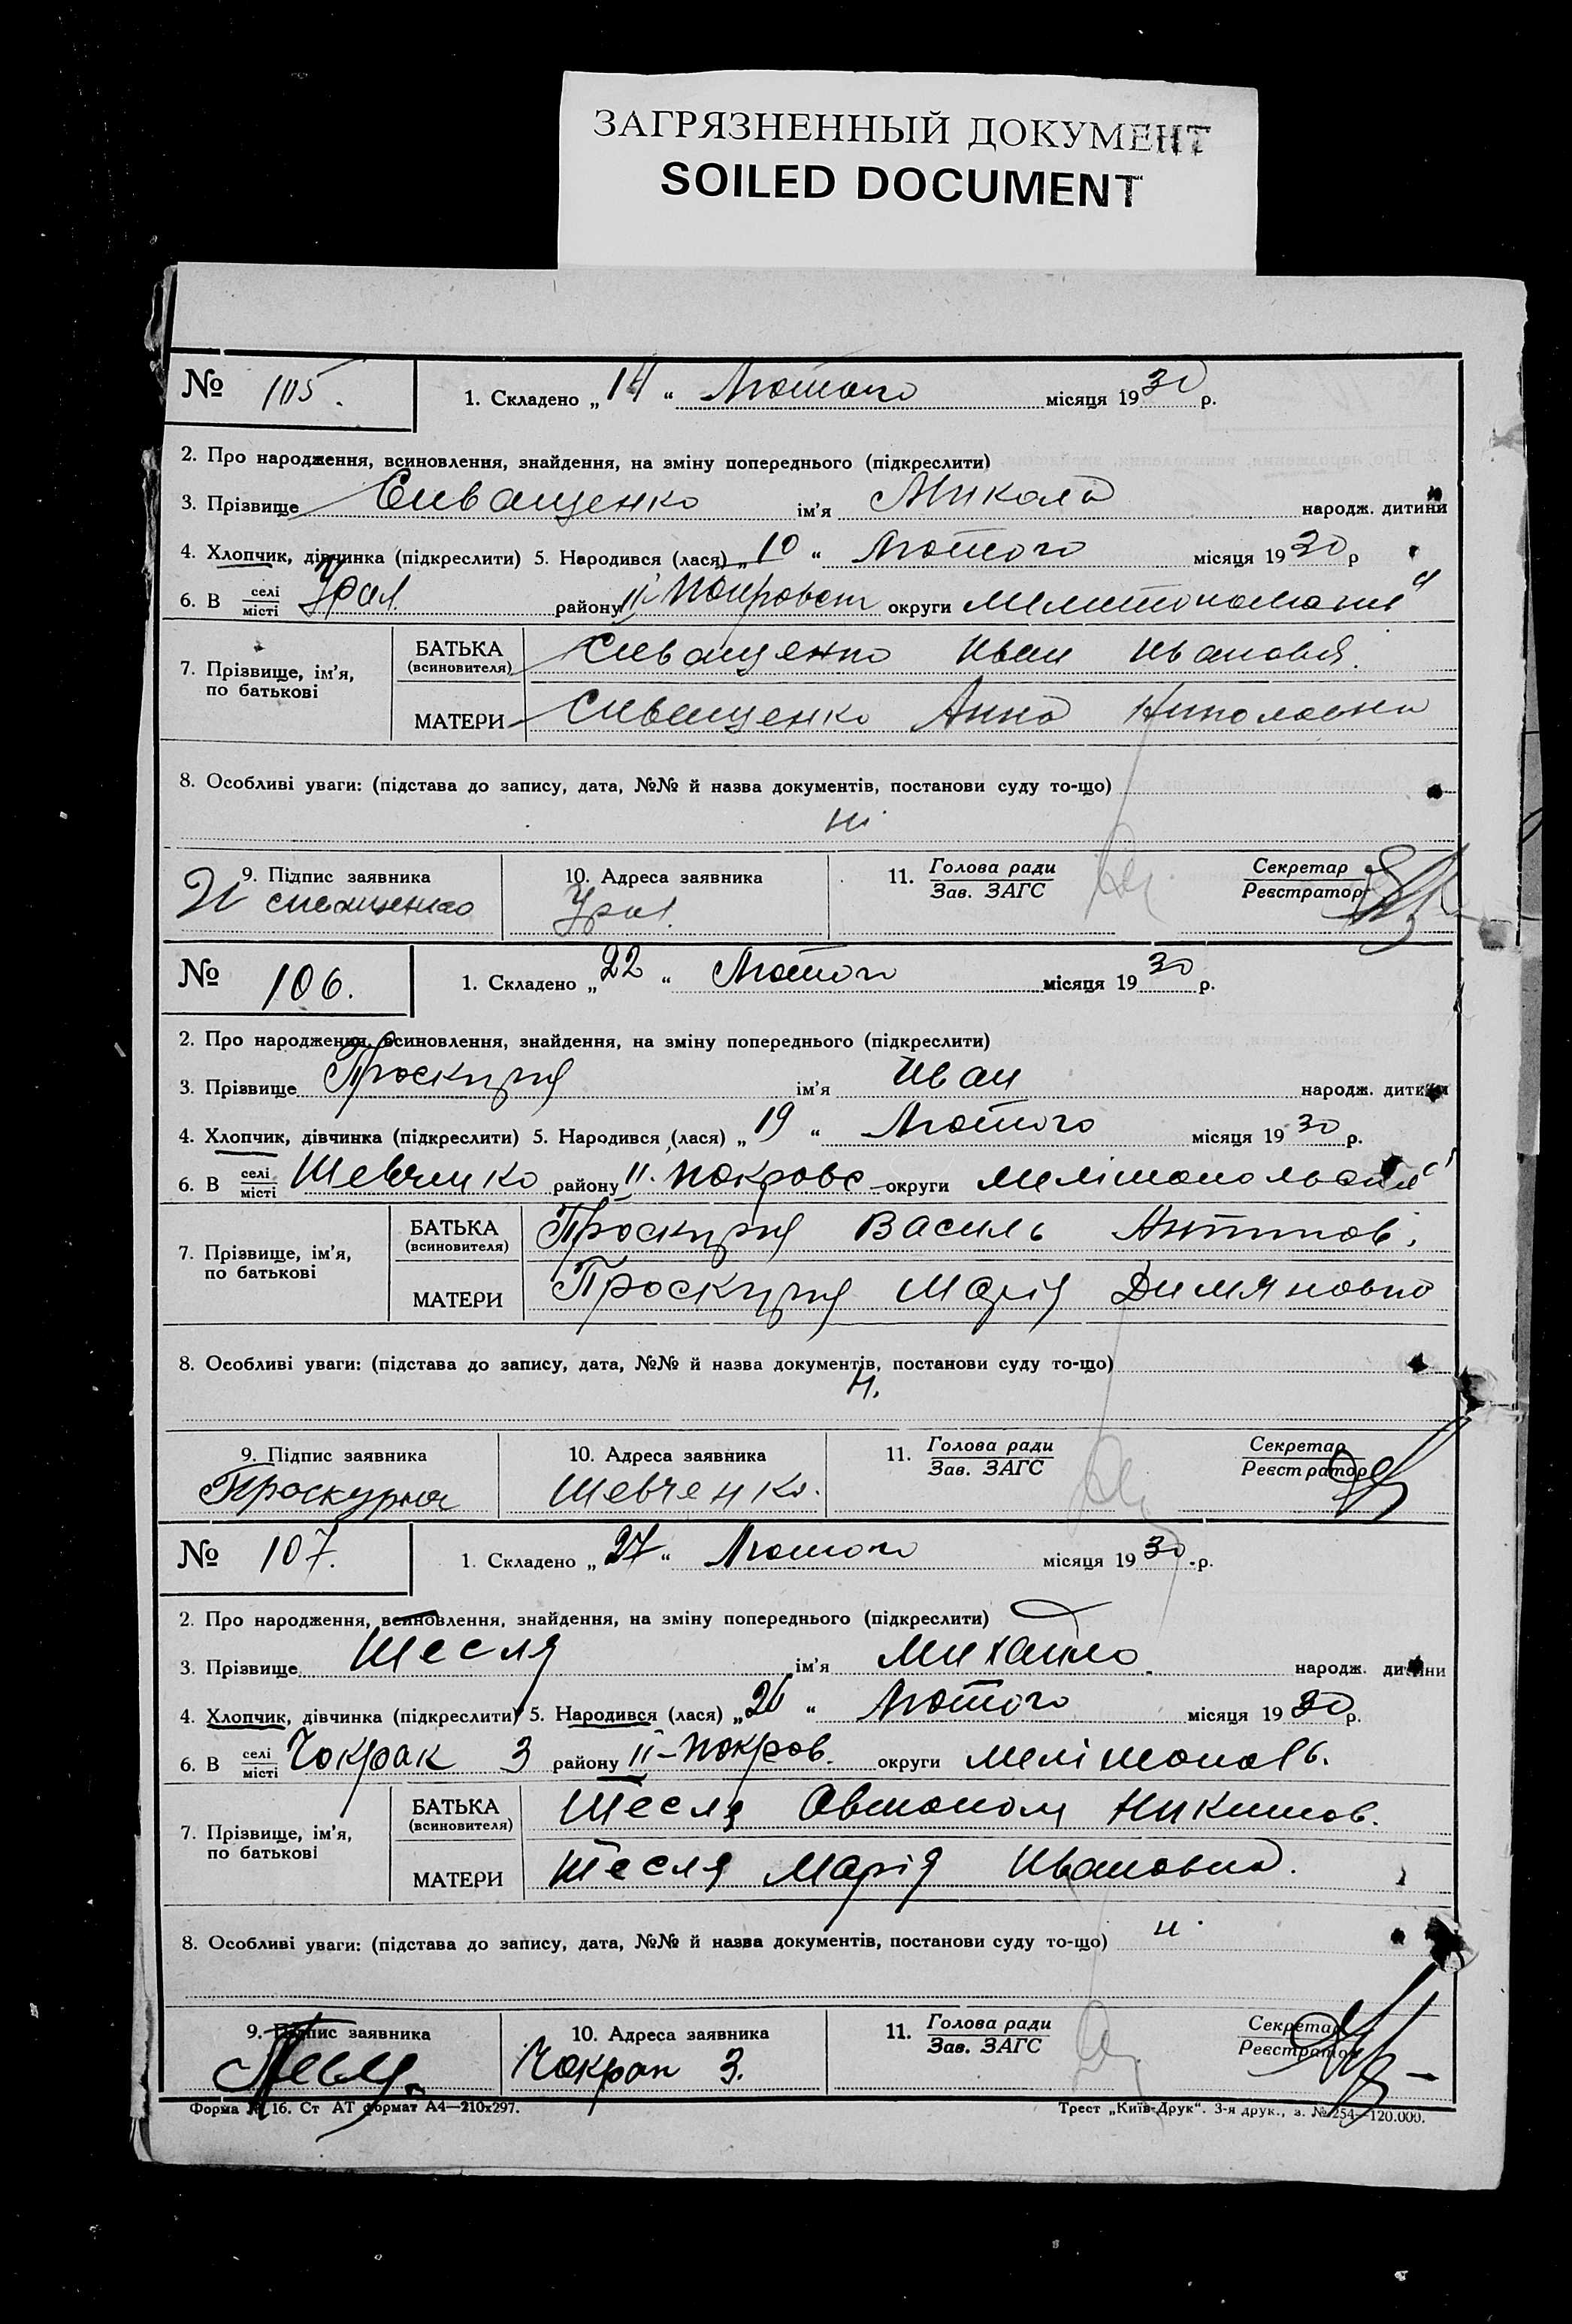 ЗАГРЯЗНЕННЫЙ ДОКУМЕНТ
SOILED DOCUMENT
№ 105. 1. Складено „14“ Лютого місяця 1930 р.
2. Про народження, всиновлення, знайдення, на зміну попереднього (підкреслити)
3. Прізвище Сиващенко ім'я Микола народж. дитини
4. Хлопчик, дівчинка (підкреслити) 5. Народився (лася) „10“ Лютого місяця 1930 р
6. В селі/місті району II Покровськ округи
7. Прізвище, ім'я, по батькові БАТЬКА (всиновителя) Сиващенко Иван Иванов.
МАТЕРИ Сиващенко Анна Николаевна
8. Особливі уваги: (підстава до запису, дата, №№ й назва документів, постанови суду то-що)
ні
9. Підпис заявника 10. Адреса заявника 11. Голова ради/Зав. ЗАГС Секретар/Реєстратор
И Сиващенко
№ 106. 1. Складено „22“ Лютого місяця 1930 р.
2. Про народження, всиновлення, знайдення, на зміну попереднього (підкреслити)
3. Прізвище Проскурня ім'я Иван народж. дитини
4. Хлопчик, дівчинка (підкреслити) 5. Народився (лася) „19“ Лютого місяця 1930 р.
6. В селі/місті Шевченко району II. Покровс округи
7. Прізвище, ім'я, по батькові БАТЬКА (всиновителя) Проскурня Василь Антипов.
МАТЕРИ Проскурня Марія Димяновна
8. Особливі уваги: (підстава до запису, дата, №№ й назва документів, постанови суду то-що)
н.
9. Підпис заявника 10. Адреса заявника 11. Голова ради/Зав. ЗАГС Секретар/Реєстратор
Проскурня Шевченко.
№ 107. 1. Складено „27“ Лютого місяця 1930 р.
2. Про народження, всиновлення, знайдення, на зміну попереднього (підкреслити)
3. Прізвище Тесля ім'я Михайло народж. дитини
4. Хлопчик, дівчинка (підкреслити) 5. Народився (лася) „26“ Лютого місяця 1930 р.
6. В селі/місті Чокрак 3 району II-Покров. округи Мелітопольь.
7. Прізвище, ім'я, по батькові БАТЬКА (всиновителя) Тесля Автоном Никитов.
МАТЕРИ Тесля Марія Ивановна.
8. Особливі уваги: (підстава до запису, дата, №№ й назва документів, постанови суду то-що) н.
9. Підпис заявника 10. Адреса заявника 11. Голова ради/Зав. ЗАГС Секретар/Реєстратор
Чокрак 3.
Форма № 16. Ст АТ формат А4—210х297. Трест „Київ-Друк“. 3-я друк., з. № 254—120.000.